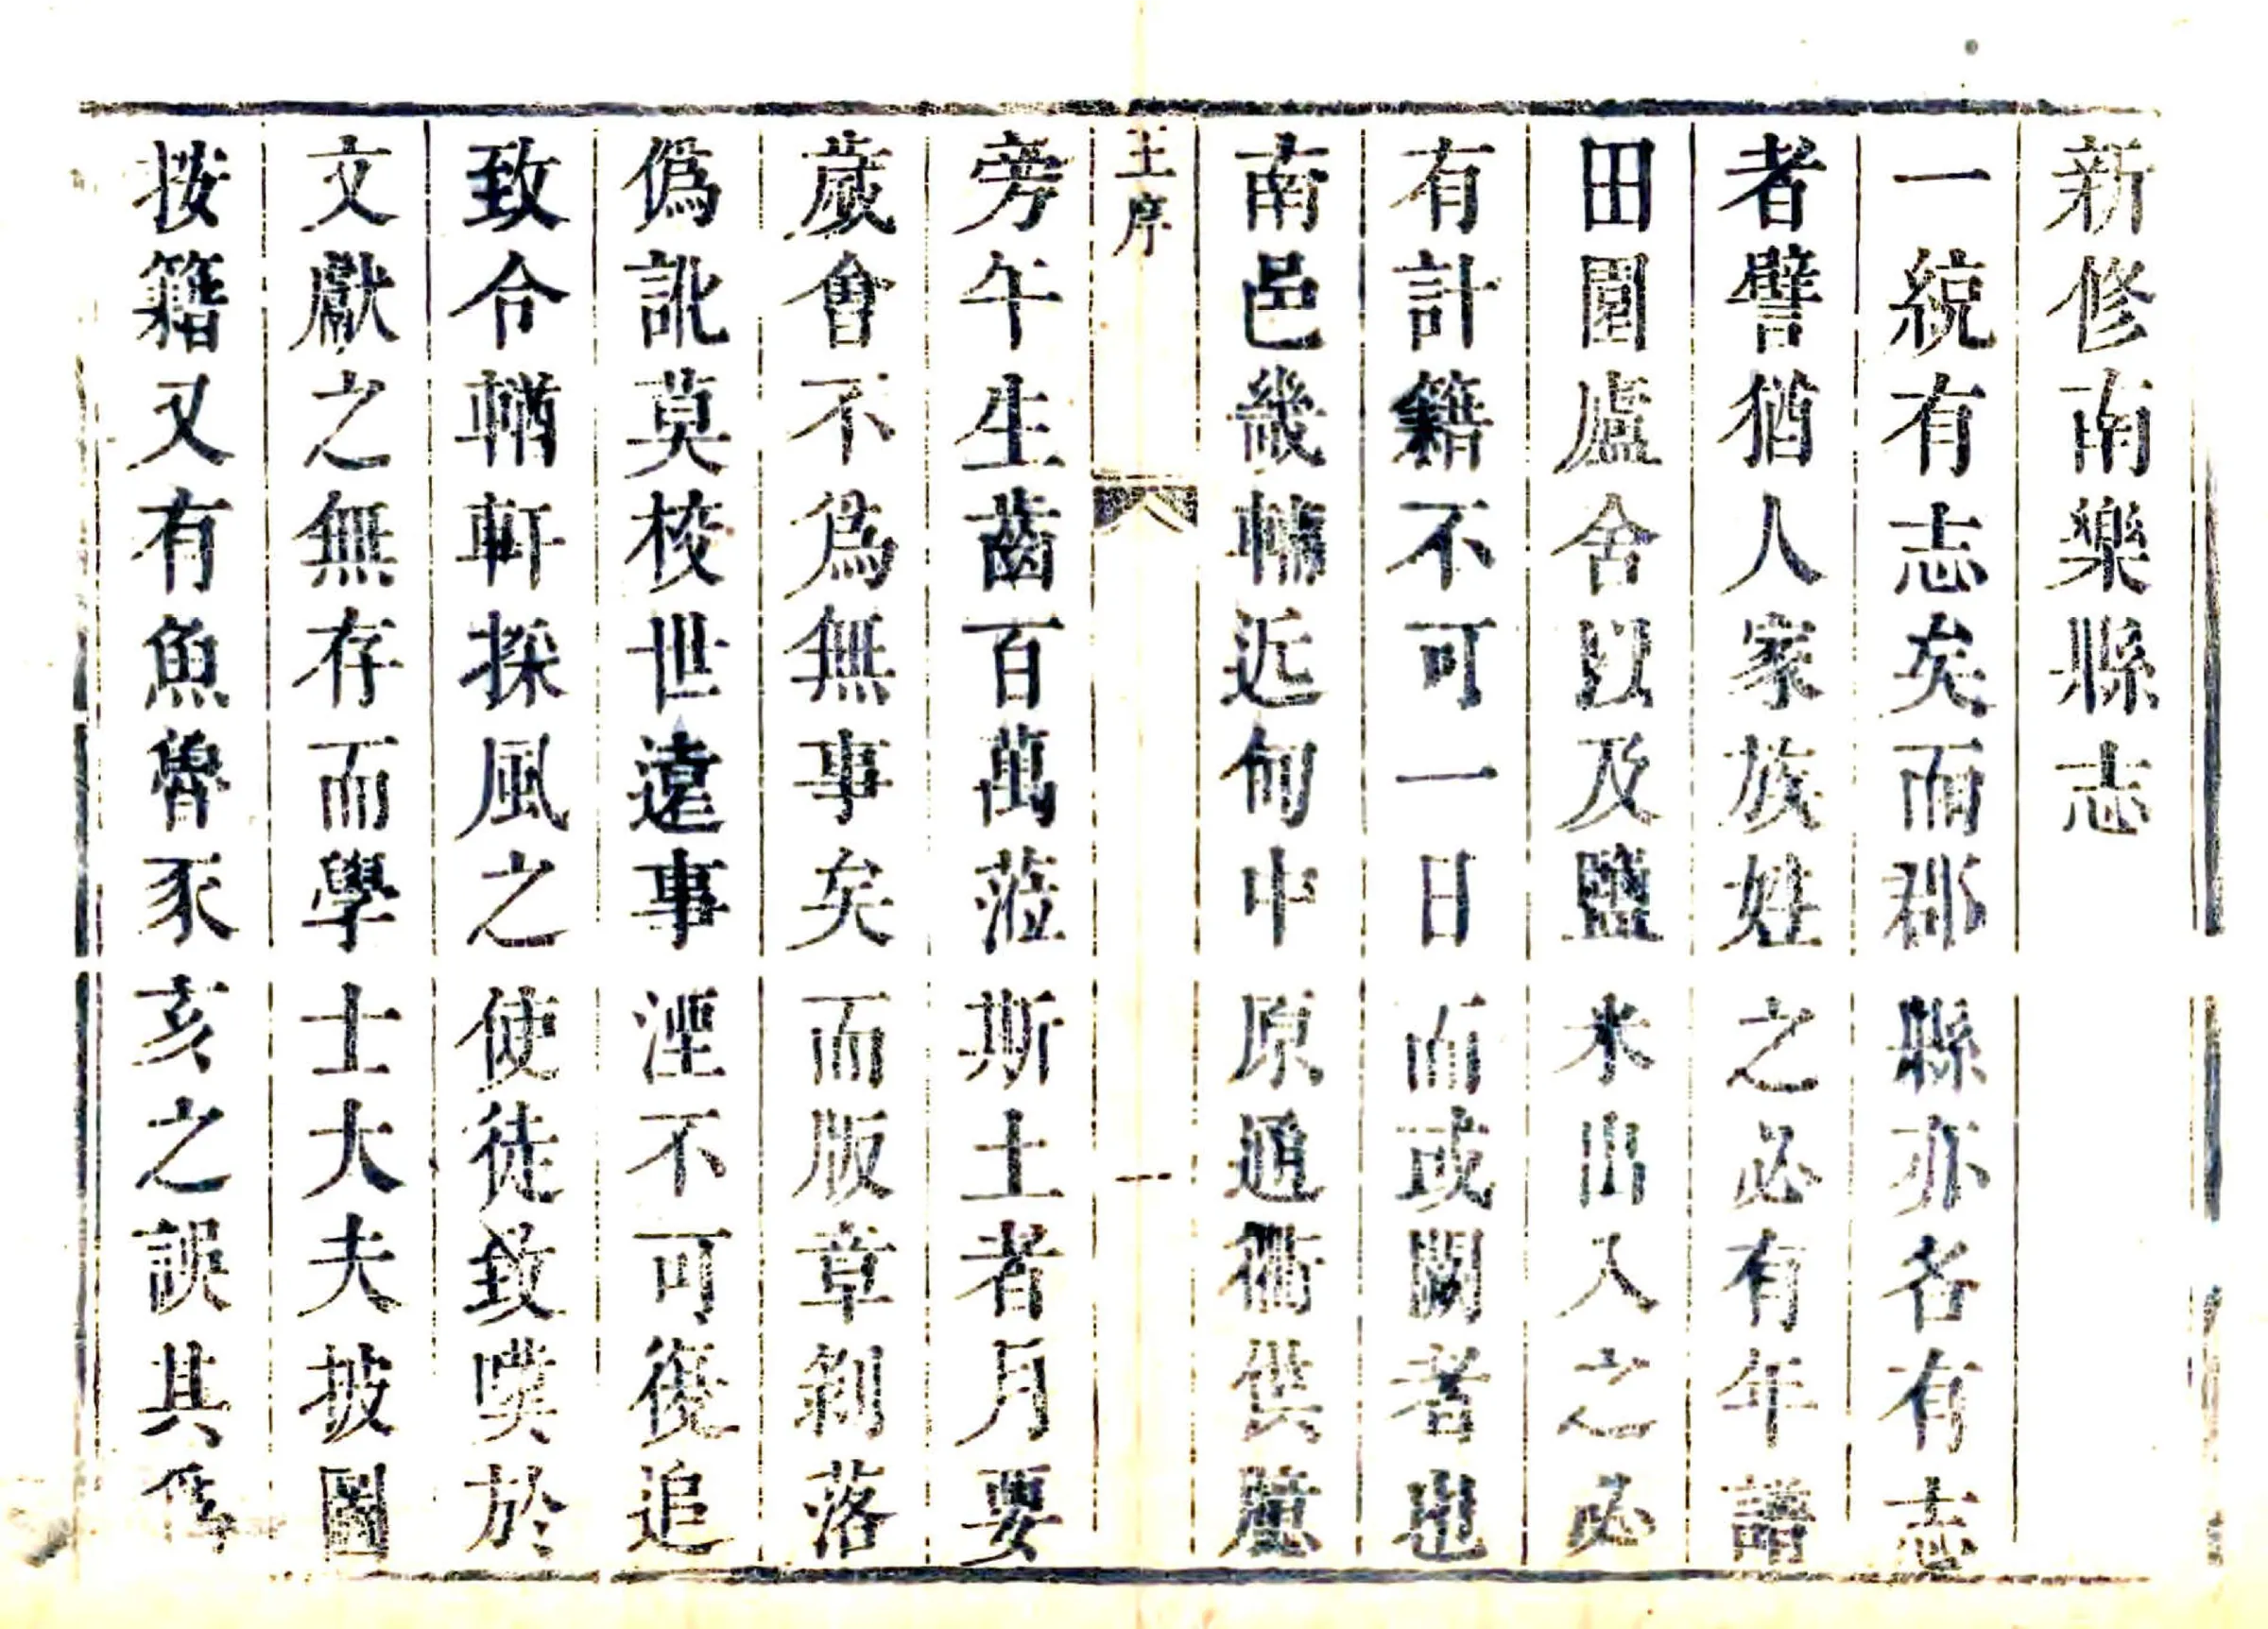 新修南樂縣志
一統有志矣而郡縣亦各有志
者譬猶人家族姓之必有年譜
田園廬舍以及鹽米出入之必
有計籍不可一日而或闕者也
南邑畿輔近甸中原通衢供應
王序
一
旁午生齒百萬蒞斯土者月要
歲會不為無事矣而版章剝落
偽訛莫校世遠事湮不可復追
致令輶軒採風之使徒致嘆於
文獻之無存而學士大夫披圖
按籍又有魚魯豕亥之誤其為